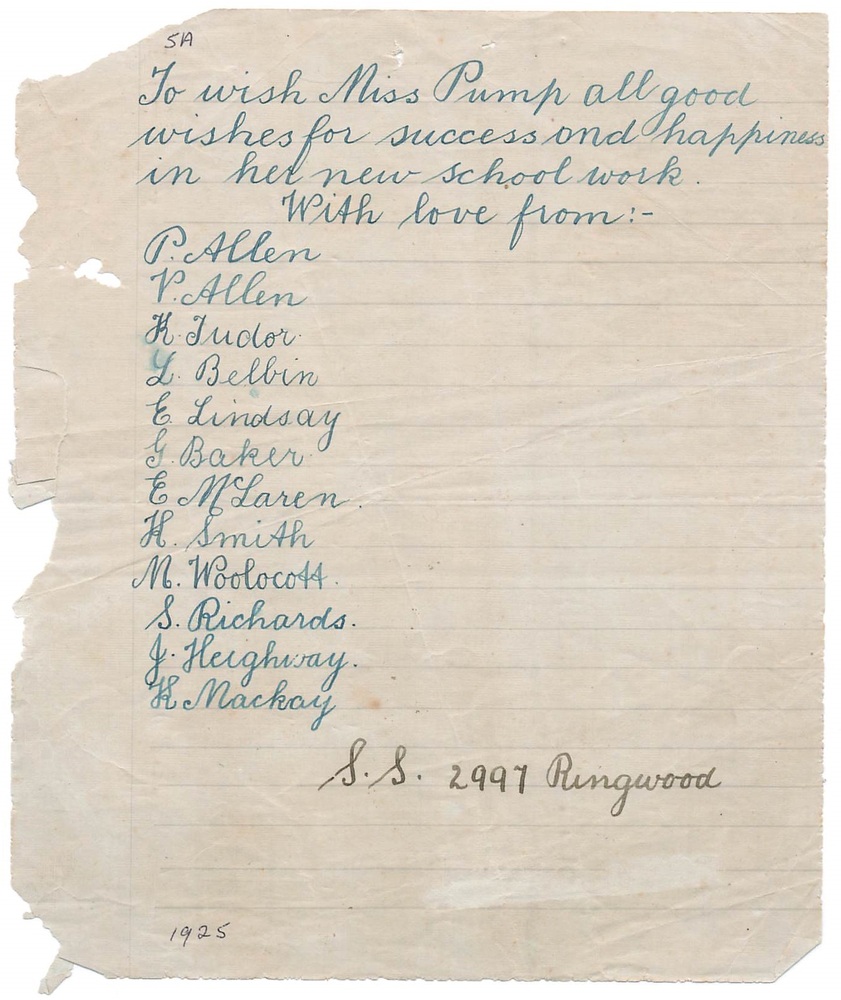 5A
To wish Miss Pump all good
wishes for success and happiness
in her new school work.
With love from:-
P. Allen
V. Allen
K. Tudor.
L. Belbin
E. Lindsay
G. Baker
E McLaren.
H. Smith
M. Woolocott.
S. Richards.
J. Heighway.
K Mackay
S.S. 2997 Ringwood
1925